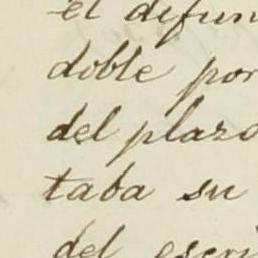 el difun
doble por
del plazo
taba su
del escri